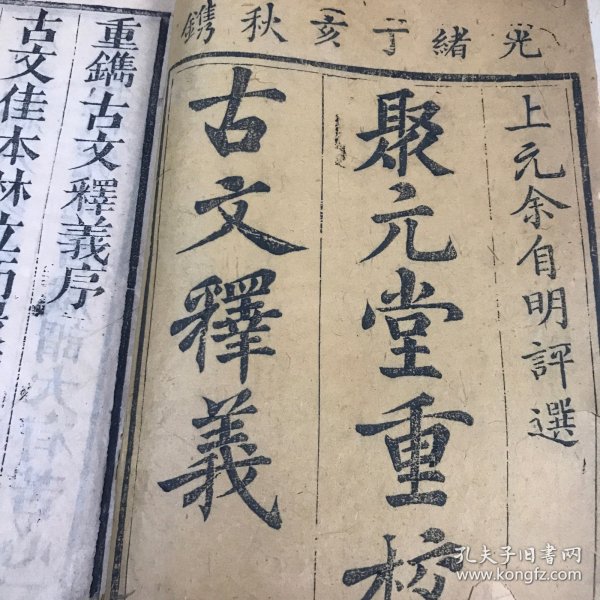 光緒丁亥秋鐫
上元余自明評選
聚元堂重校
古文釋義
重鐫古文釋義序
古文佳本林立
孔夫子旧书网
www.kongfz.com